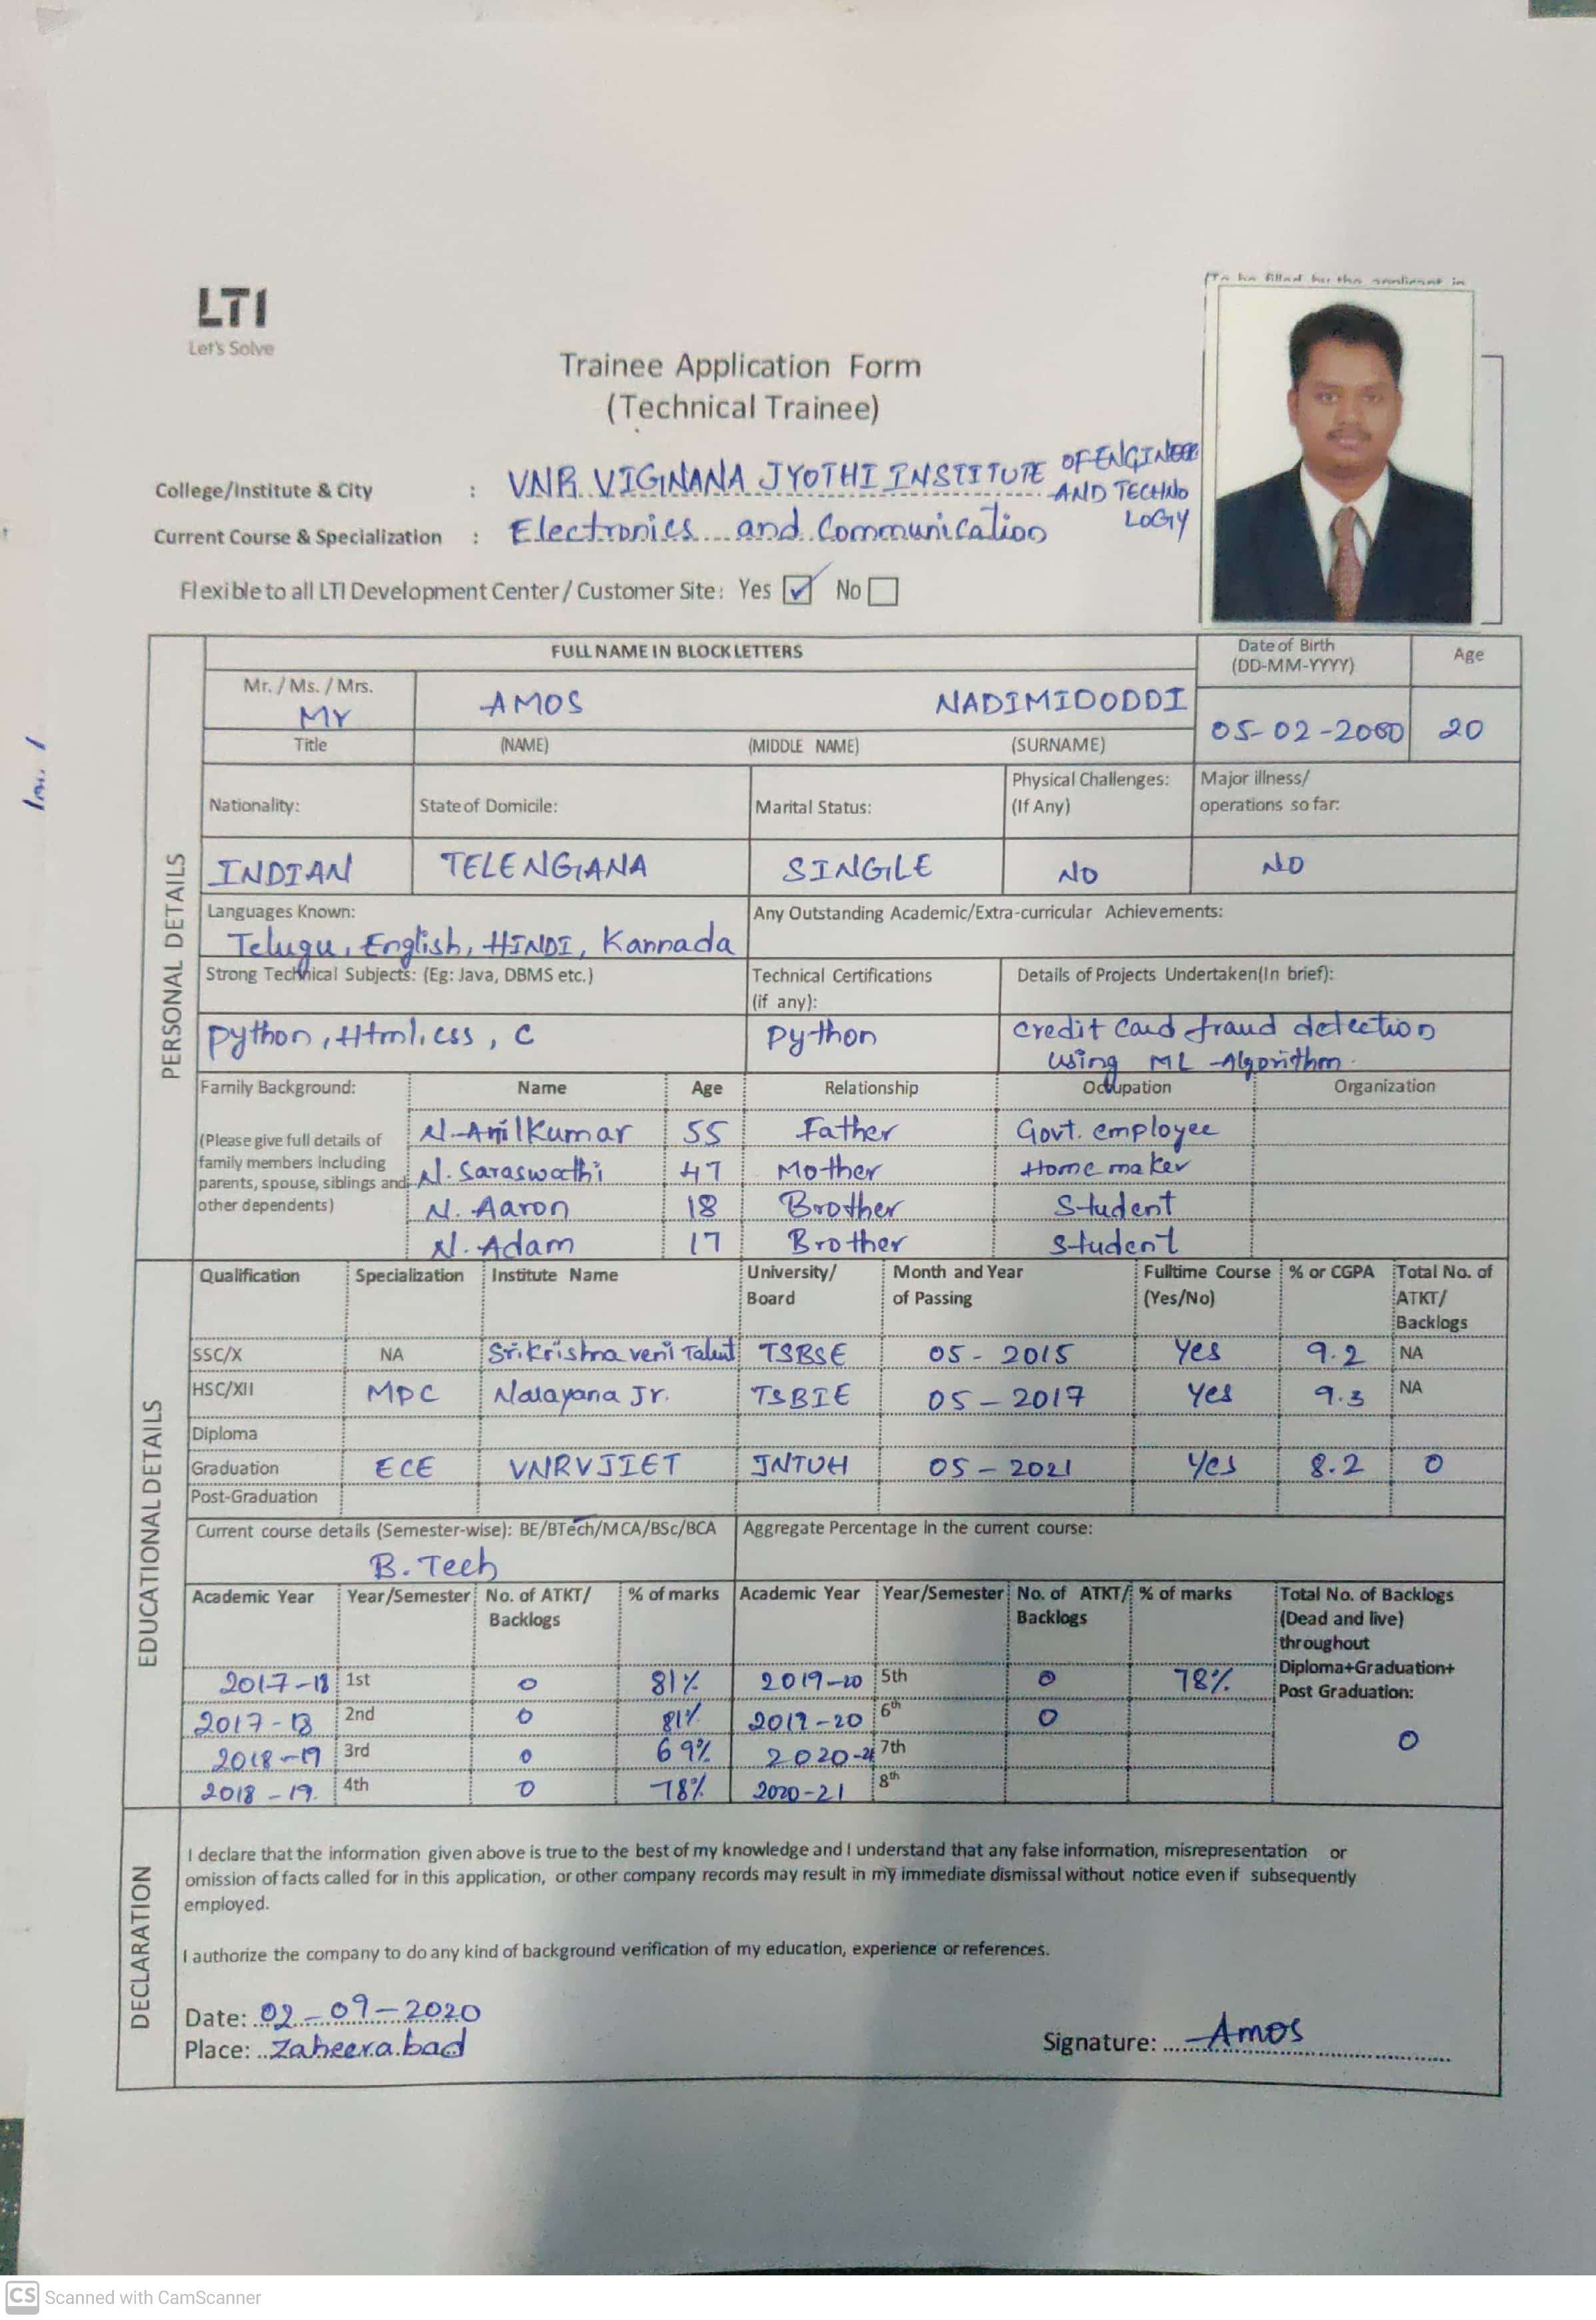 LTI
Let's Solve
(To be filled by the applicant in
Trainee Application Form
(Technical Trainee)
College/Institute & City : VNR VIGNANA JYOTHI INSTITUTE OF ENGINEER
AND TECHNO
LOGY
Current Course & Specialization : Electronics and Communication
Flexible to all LTI Development Center / Customer Site: Yes ☑ No ☐
PERSONAL DETAILS
FULL NAME IN BLOCK LETTERS Date of Birth (DD-MM-YYYY) Age
Mr. / Ms. / Mrs.
Mr AMOS NADIMIDODDI 05-02-2000 20
Title (NAME) (MIDDLE NAME) (SURNAME)
Nationality: State of Domicile: Marital Status: Physical Challenges: (If Any) Major illness/ operations so far:
INDIAN TELENGANA SINGLE NO NO
Languages Known: Any Outstanding Academic/Extra-curricular Achievements:
Telugu, English, HINDI, Kannada
Strong Technical Subjects: (Eg: Java, DBMS etc.) Technical Certifications (if any): Details of Projects Undertaken(In brief):
python, Html, css, C Python credit card fraud detection
using ML Algorithm.
Family Background: Name Age Relationship Occupation Organization
(Please give full details of family members including parents, spouse, siblings and other dependents)
N. Anilkumar 55 Father Govt. employee
N. Saraswathi 47 Mother Home maker
N. Aaron 18 Brother Student
N. Adam 17 Brother Student
EDUCATIONAL DETAILS
Qualification Specialization Institute Name University/ Board Month and Year of Passing Fulltime Course (Yes/No) % or CGPA Total No. of ATKT/ Backlogs
SSC/X NA Sri Krishna veni Talent TSBSE 05 - 2015 Yes 9.2 NA
HSC/XII MPC Narayana Jr. TSBIE 05 - 2017 Yes 9.3 NA
Diploma
Graduation ECE VNRVJIET JNTUH 05 - 2021 Yes 8.2 0
Post-Graduation
Current course details (Semester-wise): BE/BTech/MCA/BSc/BCA Aggregate Percentage in the current course:
B.Tech
Academic Year Year/Semester No. of ATKT/ Backlogs % of marks Academic Year Year/Semester No. of ATKT/ Backlogs % of marks Total No. of Backlogs (Dead and live) throughout Diploma+Graduation+ Post Graduation:
2017-18 1st 0 81% 2019-20 5th 0 78%
2017-18 2nd 0 81% 2019-20 6th 0
2018-19 3rd 0 69% 2020-21 7th 0
2018-19. 4th 0 78% 2020-21 8th
DECLARATION
I declare that the information given above is true to the best of my knowledge and I understand that any false information, misrepresentation or
omission of facts called for in this application, or other company records may result in my immediate dismissal without notice even if subsequently
employed.
I authorize the company to do any kind of background verification of my education, experience or references.
Date: 02-09-2020
Place: Zaheerabad
Signature: Amos
CS Scanned with CamScanner